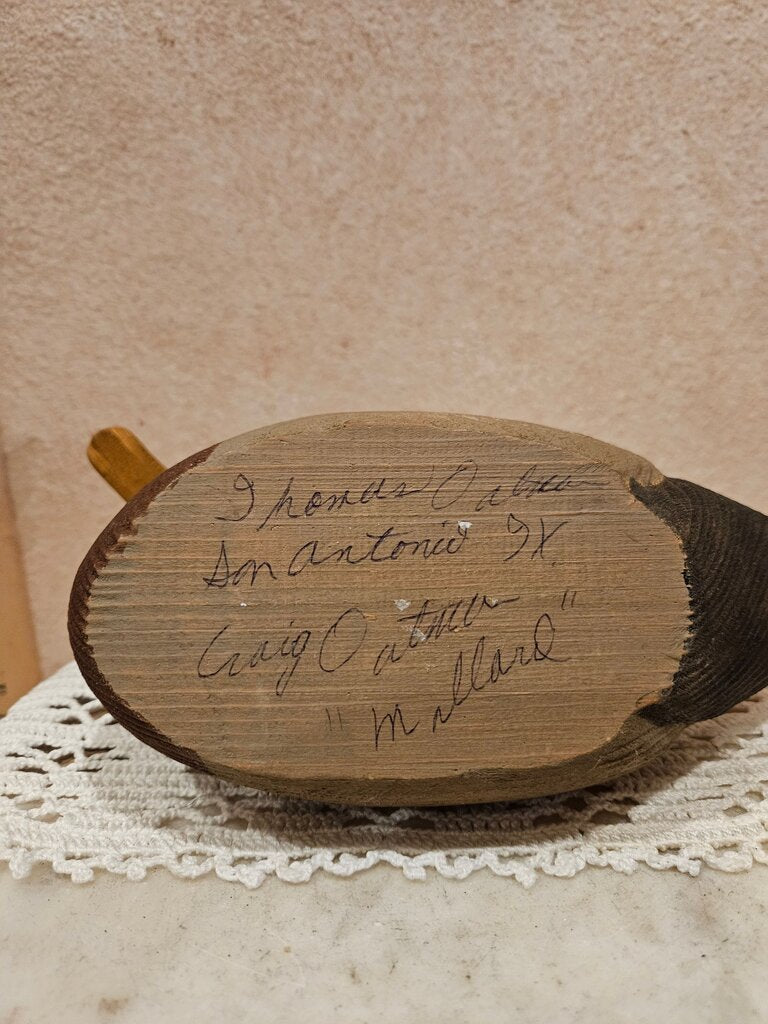 Thomas Oatman
San Antonio TX
Craig Oatman
"Mallard"